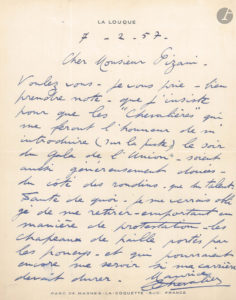 LA LOUQUE
7 - 2 - 57 -
Cher Monsieur
Voulez vous - je vous prie - bien
prendre note - que j'insiste
pour que les "Chevalières" qui
me feront l'honneur de m'
introduire (sur la piste) le soir
du Gala de l'Union - soient
aussi généreusement douées -
du côté des rondins - que du talent
faute de quoi - je me verrais obli
gé de me retirer - emportant en
manière de protestation - les
chapeaux de paille portés par
les poneys - et qui pourraient
encore me servir si ma carrière
devait durer.
Maurice
Chevalier
PARC DE MARNES-LA-COQUETTE